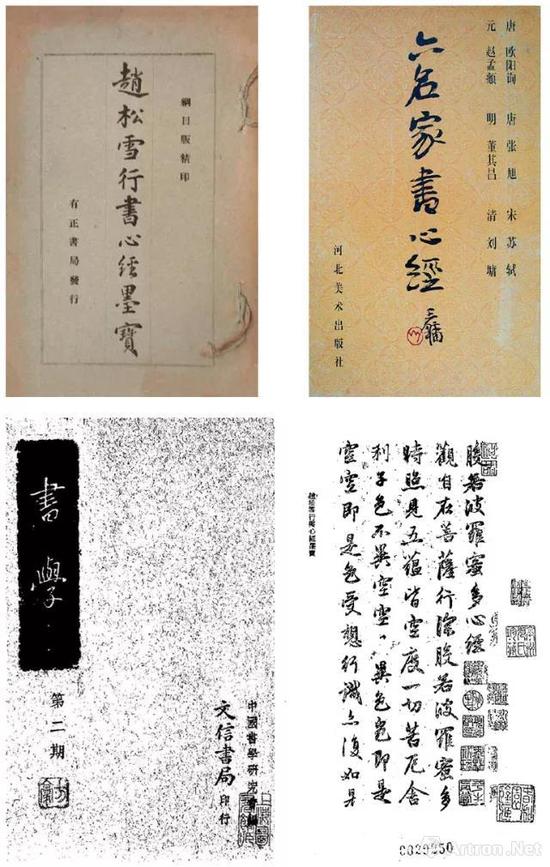 網目版精印
趙松雪行書心經墨寶
有正書局發行
唐 欧阳询 唐 张旭 宋 苏轼
元 赵孟頫 明 董其昌 清 刘墉
六名家書心經
河北美术出版社
書學
第二期
中國書學研究會編
文信書局印行
般若波羅蜜多心經
觀自在菩薩行深般若波羅蜜多
時照見五蘊皆空度一切苦厄舍
利子色不異空空不異色色即是
空空即是色受想行識亦復如是
趙松雪行書心經墨寶
Artron.Net